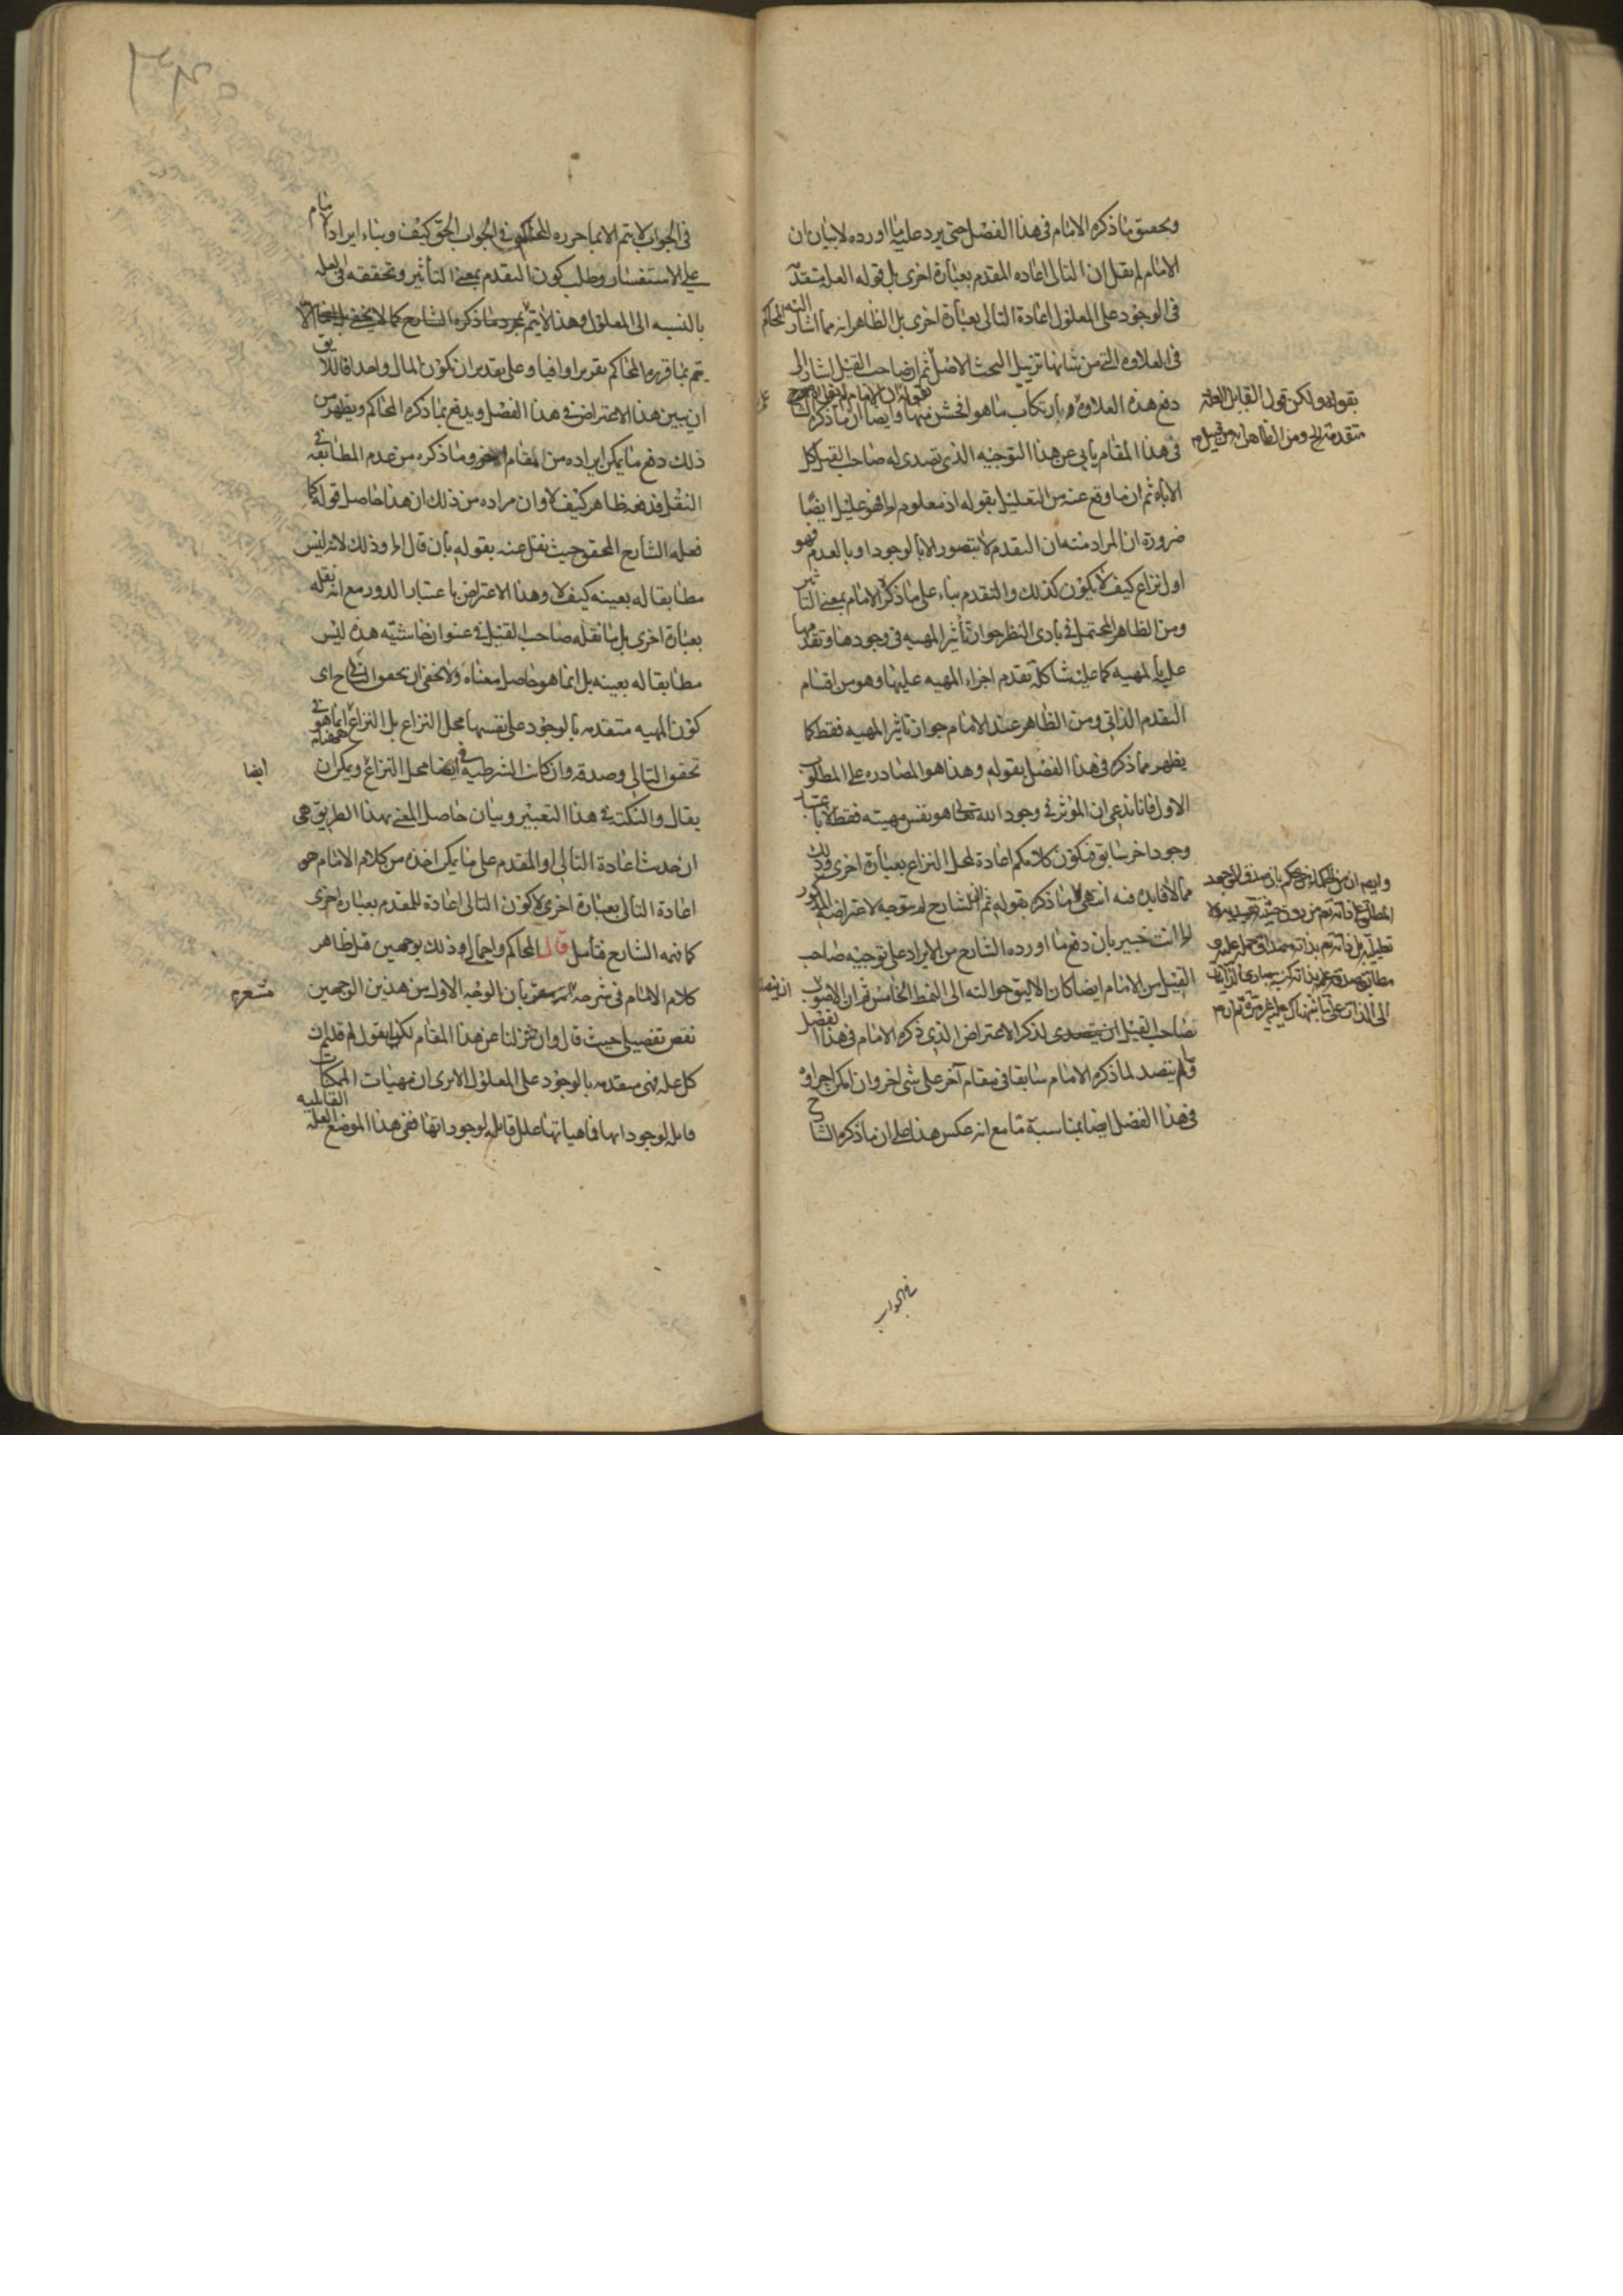 وتحقق ما ذكره الامام فى هذا الفصل حتى يرد عليه ما اورده لا بيان ان
الامام لم يقل ان التالى اعاده المقدم بعبارة اخرى بل قوله العلة متقدمة
فى الوجود على المعلول اعادة التالى بعبارة اخرى بل الظاهر انه مما اشار اليه المحاكم
فى العلاوه التى من شانها تزييل البحث الاصل ثم ان صاحب القيل اشار الى
دفع هذه العلاوة بارتكاب ما هو افحش منها وايضا ان ما ذكره الشا
فى هذا المقام يابى عن هذا التوجيه الذى تصدى له صاحب القيل كل
الاباء ثم ان ما وقع عنه من التعليل بقوله اذ معلوم الخ فهو عليل ايضا
ضرورة ان المراد منه ان التقدم لا يتصور الا بالوجود او بالعدم فهو
اول نزاع كيف لا يكون كذلك والتقدم بناء على ما ذكره الامام بمعنى التاثير
ومن الظاهر المحتمل فى بادى النظر جواز تأثير المهيه فى وجودها وتقدمها
عليه بالمهيه كما عليه شاكلة تقدم اجزاء المهيه عليها وهو من اقسام
التقدم الذاتى ومن الظاهر عند الامام جواز تاثير المهيه فقط كما
يظهر مما ذكره فى هذا الفصل بقوله وهذا هو المصادره على المطلوب
الاول فانا ندعى ان المؤثر فى وجود الله تعالى هو نفس مهيته فقط لا باعتبار
وجود اخر سابق فيكون كلامكم اعادة لمحل النزاع بعبارة اخرى وذلك
مما لا فايده فيه انتهى ما ذكره بقوله ثم ان الشارح لم يتوجه لاعتراضه المذكور
الخ انت خبير بان دفع ما اورده الشارح من الايراد على توجيه صاحب
القيل من الامام ايضا كان الاليق حوالته الى النمط الخامس ثم ان الاصوب
لصاحب القيل ان يتصدى لذكر الاعتراض الذى ذكره الامام فى هذا الفصل
ولم يتصد لما ذكره الامام سابقا فى مقام آخر على شى اخر وان امكن اجراؤه
فى هذا الفصل ايضا بمناسبة ما مع انه عكس هذا على ان ما ذكره الشارح
بقوله ولكن قول القابل العلة
متقدمة الخ ومن الظاهر
فى الجواب
فى الجواب لا يتم الا بما حرره المحاكم فى الجواب الحق كيف وبناء ايراد الامام
على الاستفسار وطلب كون التقدم بمعنى التأثير وتحققه فى العلة
بالنسبه الى المعلول وهذا لا يتم بمجرد ما ذكره الشارح كما لا يخفى بل انما
يتم بما قرره المحاكم تقريرا وافيا وعلى تقدير ان يكون المال واحدا فاللايق
ان يبين هذا الاعتراض فى هذا الفصل ويدفع بما ذكره المحاكم ويظهر من
ذلك دفع ما يمكن ايراده من المقام الاخر وما ذكره من عدم المطابقه فى
النقل فدفعه ظاهر كيف لا وان مراده من ذلك ان هذا حاصل قوله كما
فعله الشارح المحقق حيث نقل عنه بقوله بأن قال الخ وذلك لانه ليس
مطابقا له بعينه كيف لا وهذا الاعتراض باعتبار الدور مع انه نقله
بعبارة اخرى بل ما نقله صاحب القيل فى عنوان حاشيته هذه ليس
مطابقا له بعينه بل انما هو حاصل معناه ولا يخفى ان تحقق التالى اى
كون المهيه متقدمه بالوجود على نفسها محل النزاع بل النزاع انما هو فى
تحقق التالى وصدقه وان كانت الشرطية ايضا محل النزاع ويمكن ان
يقال والنكتة فى هذا التعبير وبيان حاصل المعنى بهذا الطريق هى
ان حديث اعادة التالى او المقدم على ما يمكن اخذه من كلام الامام هو
اعادة التالى بعبارة اخرى لا كون التالى اعادة للمقدم بعبارة اخرى
كما فهمه الشارح فتأمل قال المحاكم واجمالى وذلك بوجهين قيل ظاهر
كلام الامام فى شرحه بان الوجه الاول من هذين الوجهين
نقض تفصيلى حيث قال وان نزلنا عن هذا المقام لكنا نقول لم قلتم ان
كل علة فهى متقدمه بالوجود على المعلول الا يرى ان مهيات الممكنات
قابلة لوجوداتها فماهياتها علل قابلة لوجوداتها ففى هذا الموضع العلة القابلية
ايضا
مشعرة